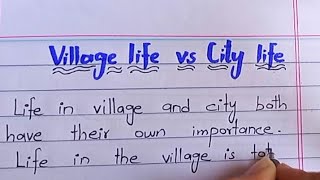 Village life vs City life
Life in village and city both
have their own importance.
Life in the village is